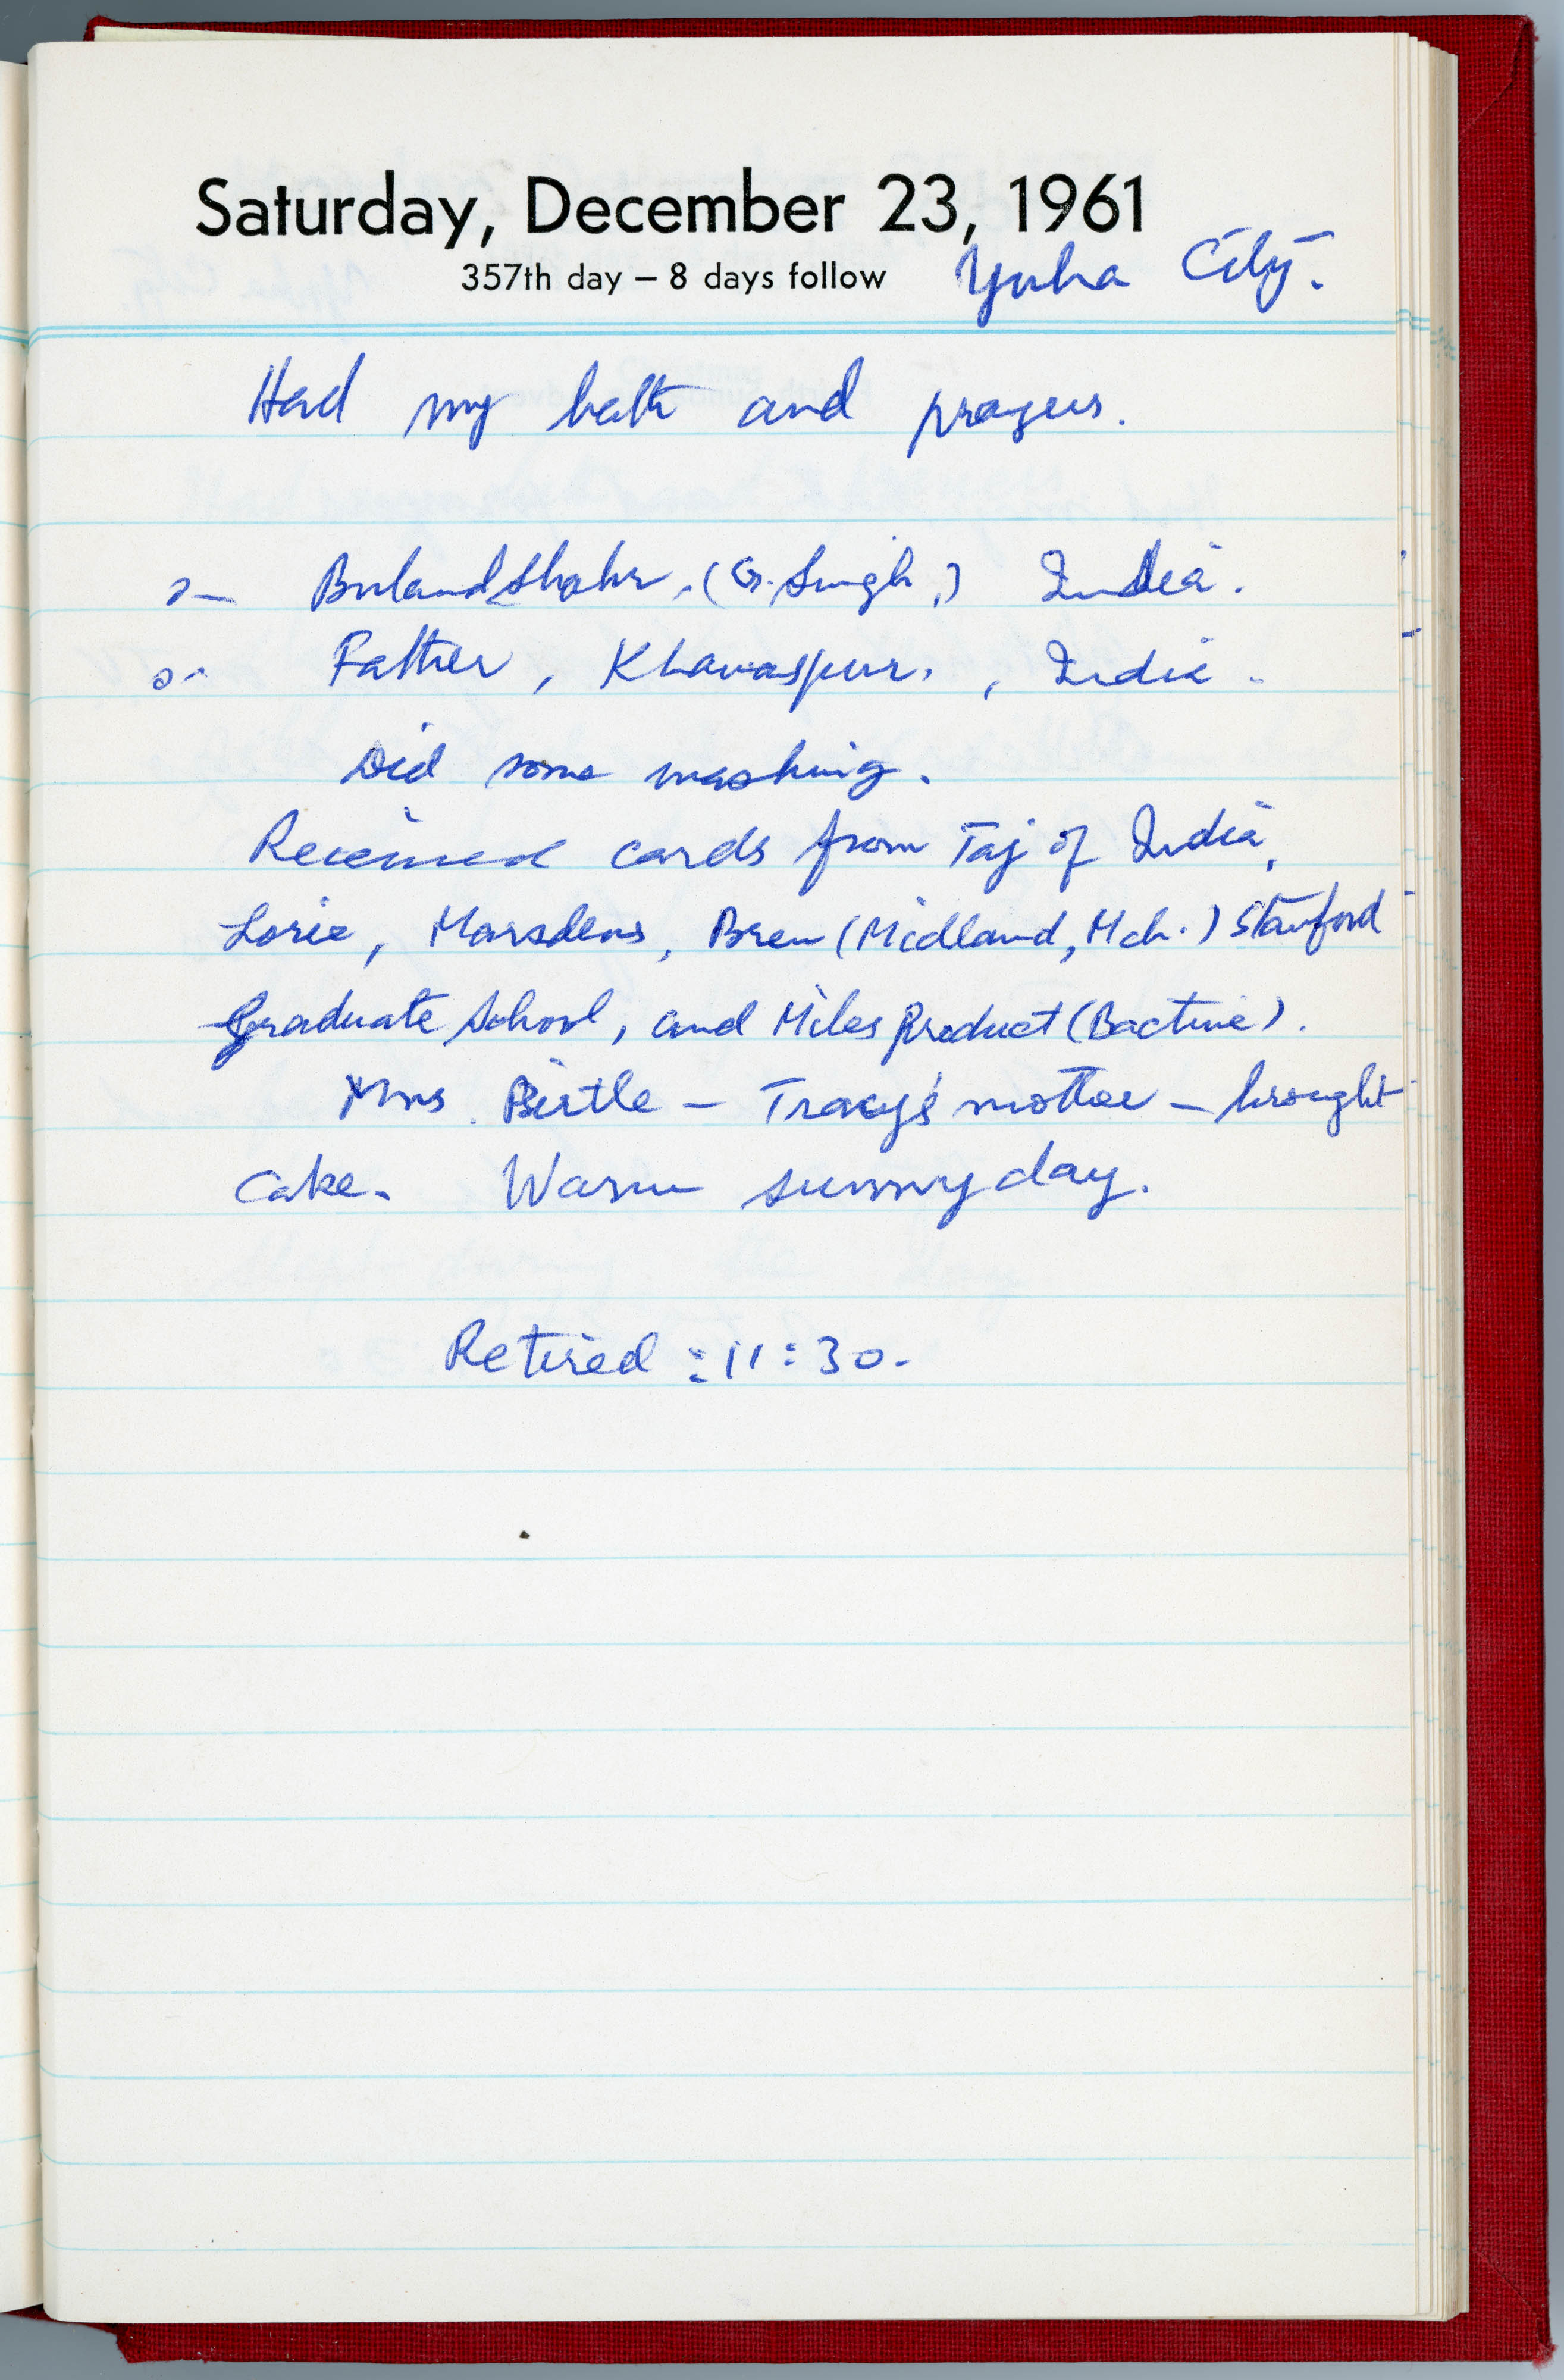 Saturday, December 23, 1961
357th day – 8 days follow Yuba City.
Had my bath and prayers.
Bulandshahr, (G. Singh,) India.
Father, Khavaspur, , India.
Did some washing.
Received cards from Taj of India,
Lorie, Marsdens, Bren (Midland, Mch.) Stanford
Graduate School, and Miles Product (Bactine).
Mrs. Birtle – Tracy's mother – brought
cake. Warm sunny day.
Retired : 11:30.